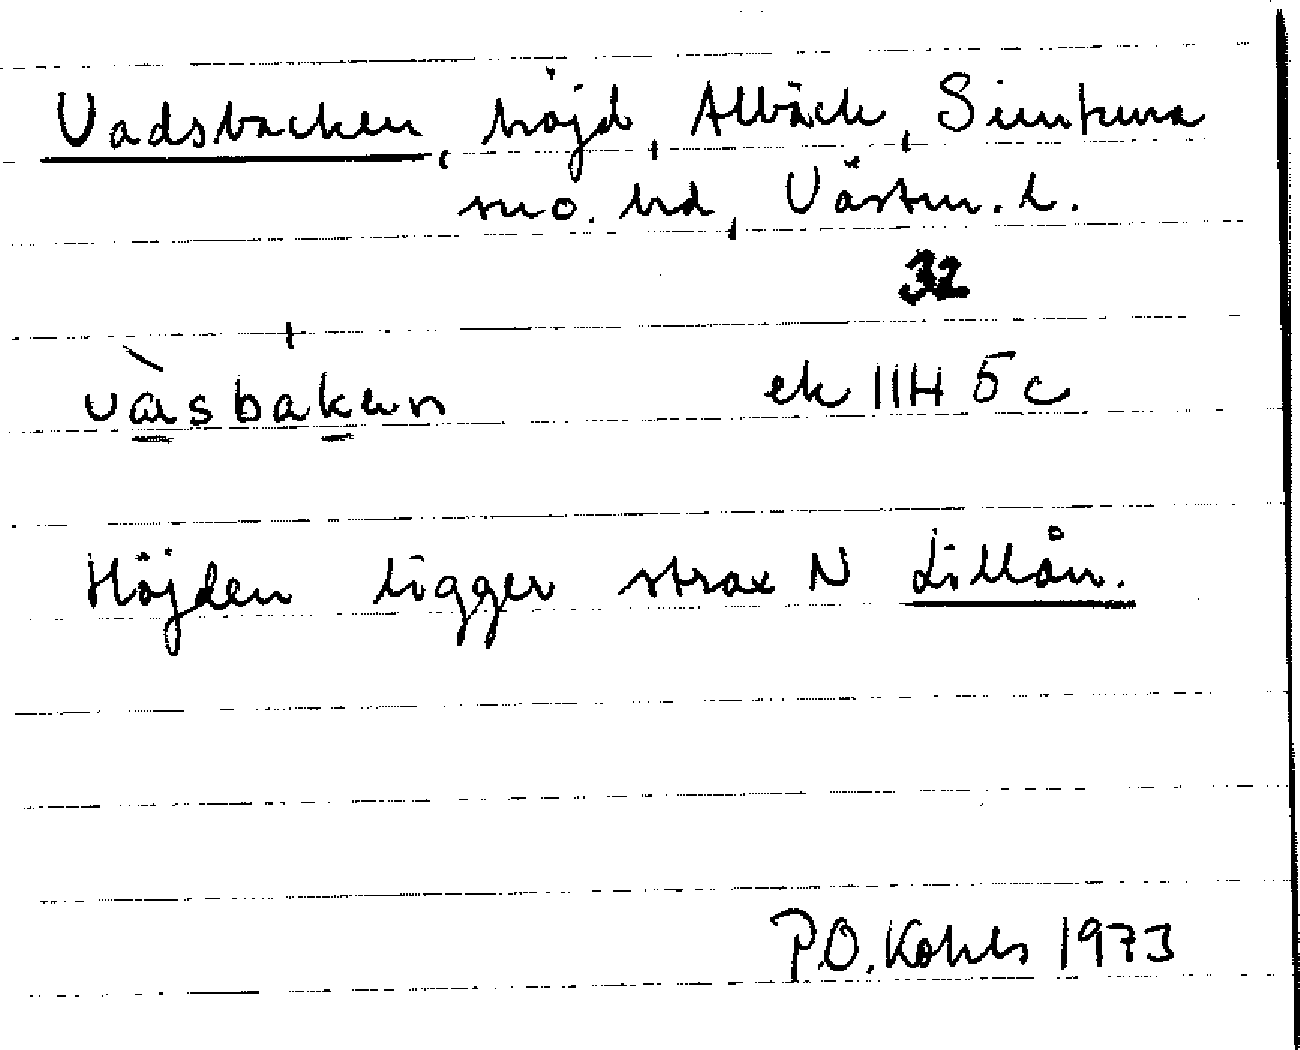 Vadsbacken, höjd, Albäck, Simtuna
sn o. hd, Västm. l.
32
vàsbakan ek 11H 5c
Höjden ligger strax N Lillån.
P.O. Kohls 1973